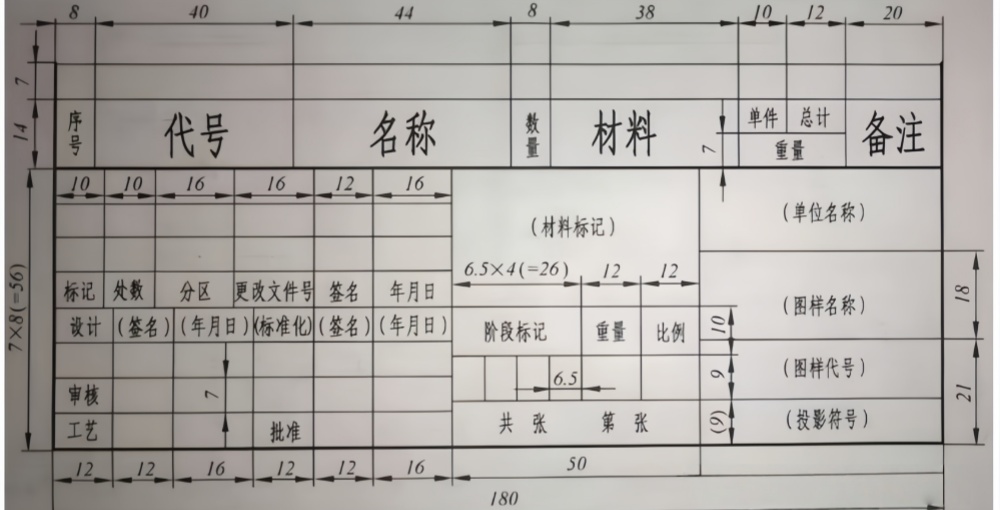 8 40 44 8 38 10 12 20
7
14
序号 代号 名称 数量 材料 7 单件 总计 重量 备注
10 10 16 16 12 16
(材料标记)
(单位名称)
6.5×4(=26) 12 12
7×8(=56)
标记 处数 分区 更改文件号 签名 年月日
(图样名称)
18
设计 (签名) (年月日) (标准化) (签名) (年月日)
阶段标记 重量 比例 10
(图样代号)
6.5 9
审核 7
21
工艺 批准
共 张 第 张 (9)
(投影符号)
12 12 16 12 12 16 50
180